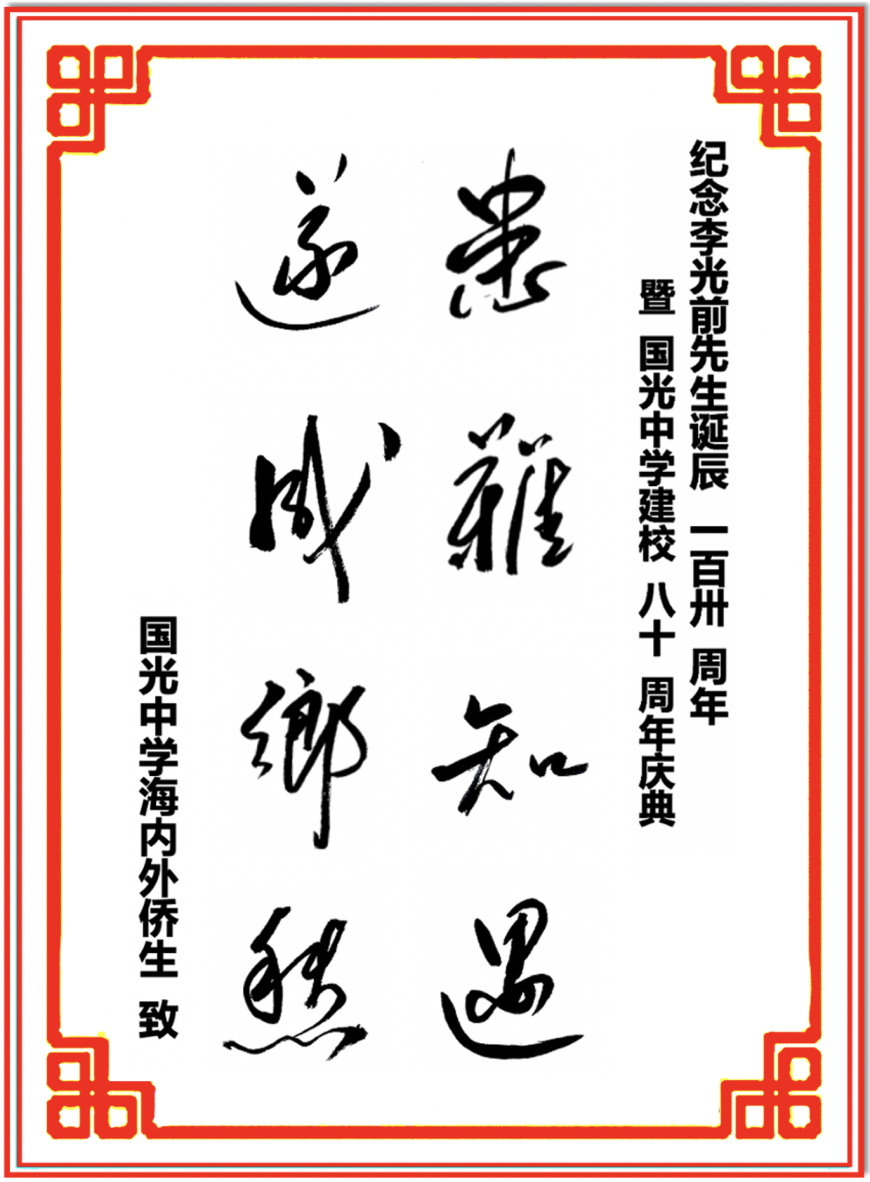 纪念李光前先生诞辰 一百卅 周年
暨 国光中学建校 八十 周年庆典
患難知遇
遂成鄉愁
国光中学海内外侨生 致